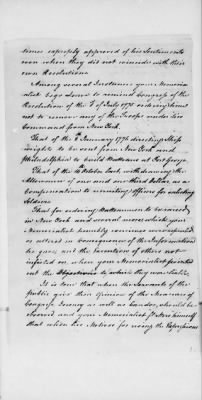 times expressly approved of his Sentiments
even when they did not coincide with their
own Resolutions.
Among several Instances your Memoria
list begs Leave to remind Congress of the
Resolution of the of July 1775 ordering him
not to remove any of the Troops under his
Command from New York.
That of the of January 1776 directing Ship
wrights to be sent from New York and
Philadelphia to build Batteaus at Fort George.
That of the October last withdrawing the
Allowance of one and one third Dollar, as a
Compensation to recruiting Officers for enlisting
Soldiers
That for ordering Battalions to be raised
in New York and several more which your
Memorialist humbly conceives were
or altered in Consequence of the Information
he gave and the Execution of others not
insisted on, when your Memorialist pointed
out the Objections to which they were liable.
It is true that when the Servants of the
public give their Opinion of the Measures of
Congress Decency as well as Candor, should be
observed and your Memorialist himself
that when his Motives for using the Expressions